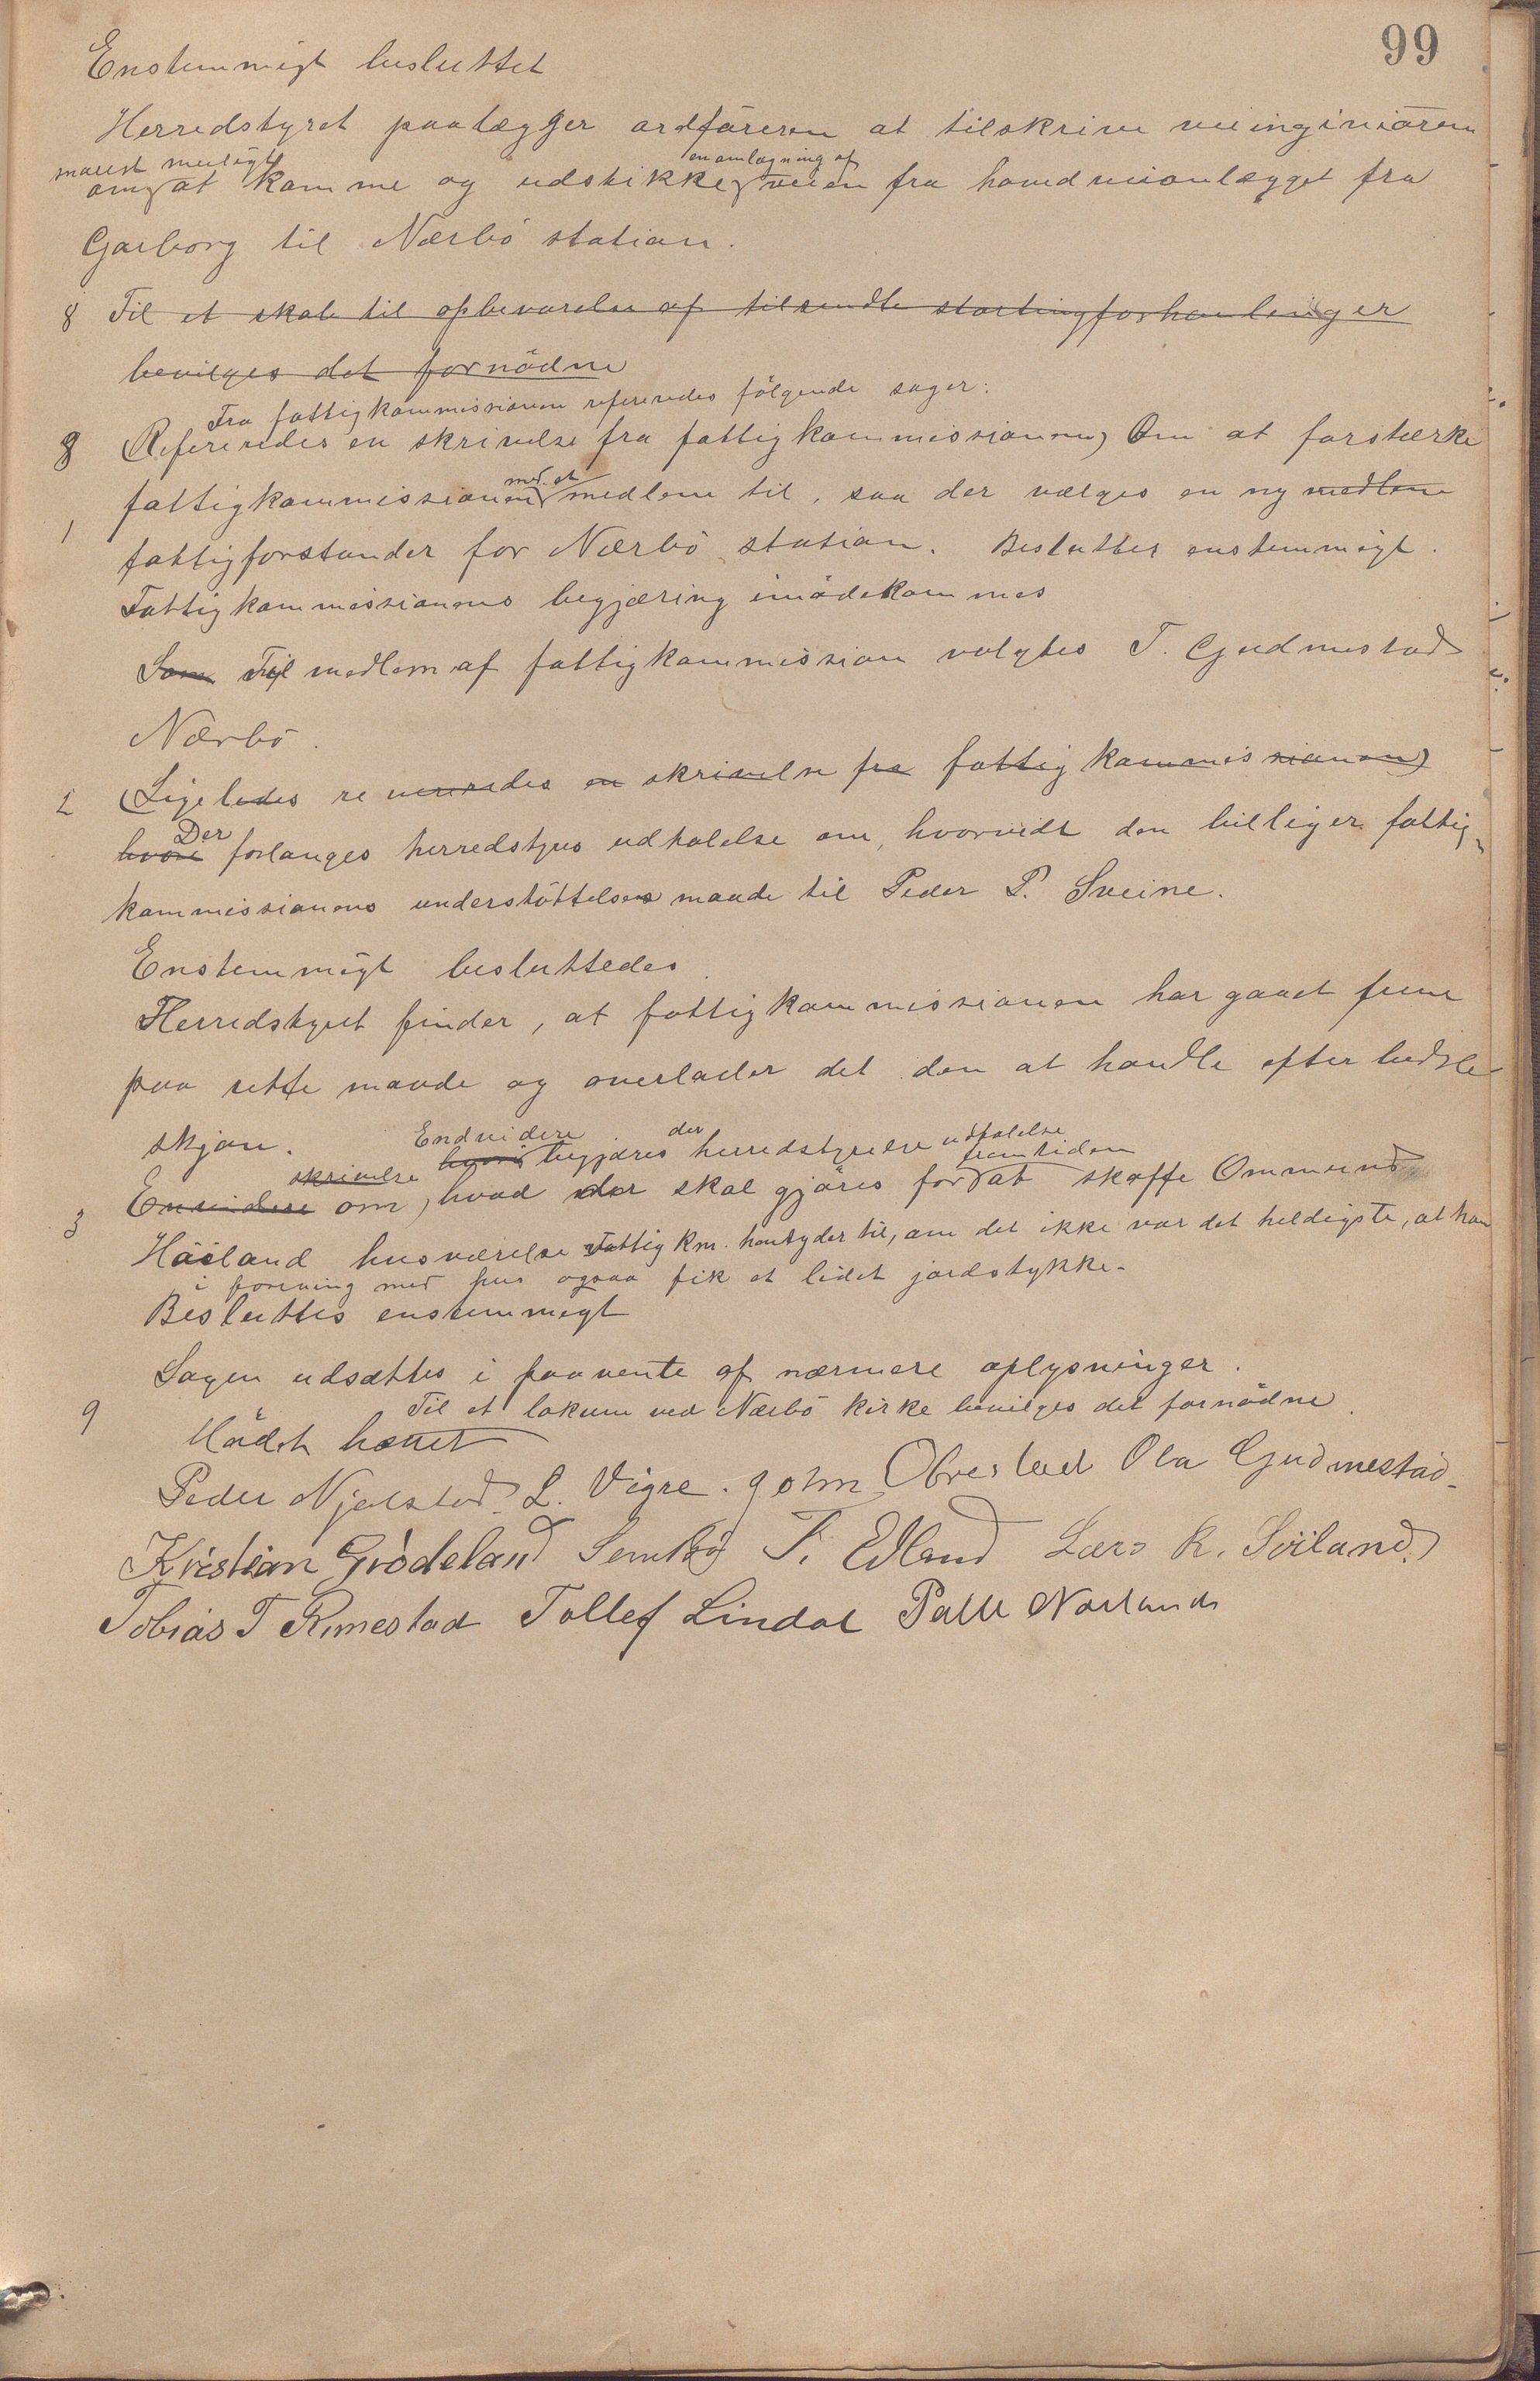 99
Enstemmigt besluttet
Herredstyret paalægger ordføreren at tilskrive veiinginiøren
snarest muligt en omlægning af
om at komme og udstikke veien fra hovedveianlægget fra
Garborg til Nærbö station.
8 Til et skab til opbevarelse af tilsendte stortingforhanlinger
bevilges det fornödne
Fra fattigkommissionen refereredes fölgende sager:
8 (Refereredes en skrivelse fra fattigkommissionen) Om at forstærke
med et
fattigkommissionen medlem til, saa der vælges en ny medlem
1 fattigforstander for Nærbö station. Besluttes enstemmigt.
Fattigkommissionens begjæring imödekommes
Som Til medlem af fattigkommission valgtes T. Gudmestad
Nærbö.
2 (Ligeledes re vereredes en skrivelse fra fattigkommissionen)
Der
hvori forlanges herredstyres udtalelse om, hvorvidt den billiger fattig-
kommissionens understöttelses maade til Peder P. Sveine.
Enstemmigt besluttedes
Herredstyret finder, at fattigkommissionen har gaaet frem
paa rette maade og overlader det den at handle efter bedste
skjön.
Endvidere der udtalelse
skrivelse hvori begjæres herredstyrelse fremtiden
3 Envidere om, hvad der skal gjöres for at skaffe Ommund
Häiland husværelse Fattigkm. hentyder til, om det ikke var det heldigste, at han
i forening med hus ogsaa fik et lidet jordstykke.
Besluttes enstemmigt
Sagen udsættes i paavente af nærmere oplysninger.
9 Til et lokum ved Nærbö kirke bevilges det fornödne.
Mödet hævet
Peder Njølstad L. Vigre. John Obrestad Ola Gudmestad
Kristian Grödeland T. Edland Lars R. Söiland.
Tobias T Rimestad Tollef Lindal Palle Norland